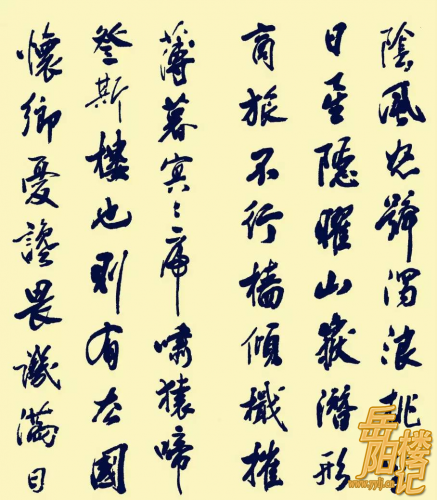 陰風怒號濁浪排
日星隱曜山嶽潛形
商旅不行檣傾檝摧
薄暮冥〻虎嘯猿啼
登斯樓也則有去國
懷鄉憂讒畏譏滿目
岳阳楼记